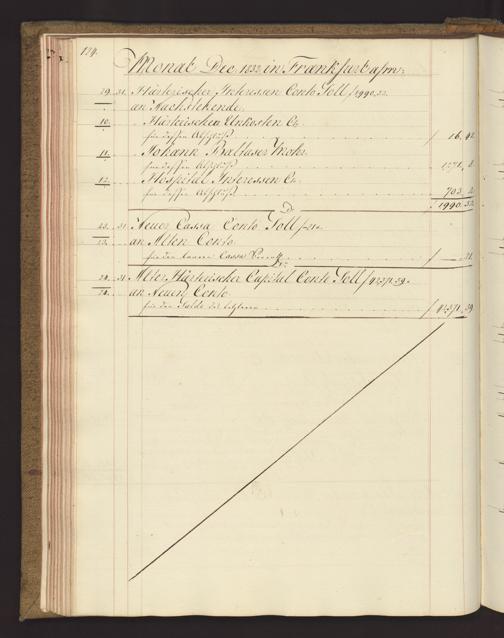 124.
Monat Dec 1832 in Frankfurt a/m:
29. 31. Härkischer Interessen Conto Soll f 1990.52.
an Nachstehende.
10. Härkischen Unkosten Co.
für dessen Abschluß f 16. 42
11. Johann Baltaser
für dessen Abschluß 1271. 8.
12. Hospital Interessen Co.
für dessen Abschluß 703. 2.
f 1990. 52.
23. 31. Neuer Cassa Conto Soll f 21.
23. an Alten Conto.
für den baaren Cassa f —. 21.
24. 31. Alter Härkischer Capital Conto Soll f 42371.39.
24. an Neuen Conto.
für den Saldo des letzteren f 42371. 39